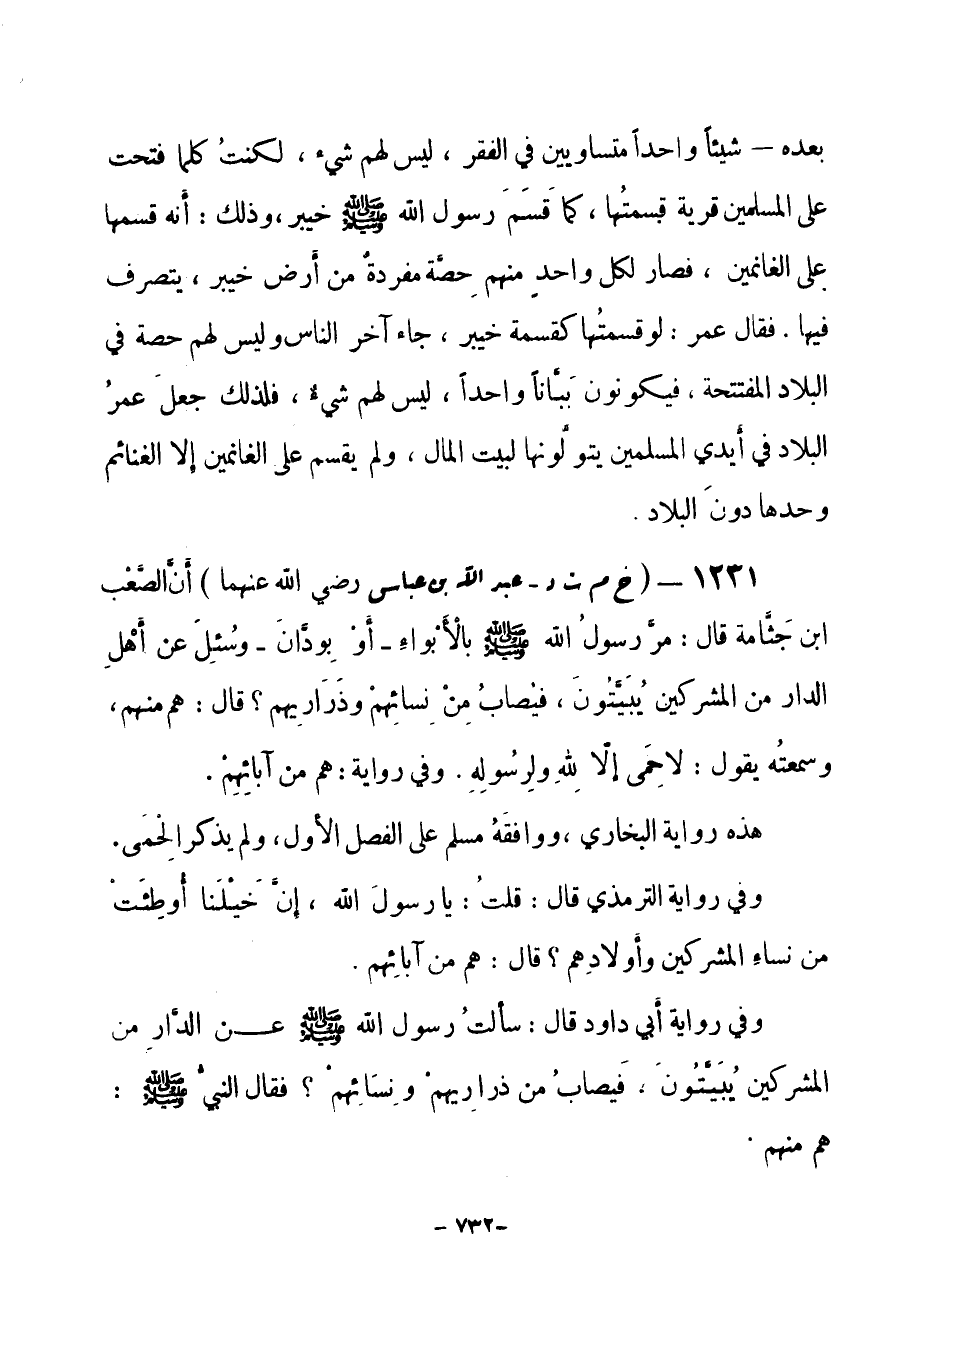 بعده — شيئاً واحداً متساويين في الفقر ، ليس لهم شيء ، لكنتُ كلما فتحت
على المسلمين قرية قسمتُها ، كما قَسَمَ رسول الله ﷺ خيبر ،وذلك : أنه قسمها
على الغانمين ، فصار لكل واحدٍ منهم حِصَّة مفردةٌ من أَرض خيبر ، يتصرف
فيها . فقال عمر : لو قسمتُها كقسمة خيبر ، جاء آخر الناس وليس لهم حصة في
البلاد المفتتحة ، فيكونون بَبَّاناً واحداً ، ليس لهم شيءٌ ، فلذلك جعلَ عمرُ
البلاد في أَيدي المسلمين يتولَّونها لبيت المال ، ولم يقسم على الغانمين إلا الغنائم
وحدها دونَ البلاد .
١٢٣١ — ( خ م ت د - عبد الله بن عباس رضي الله عنهما ) أَنَّ الصَّعْب
ابن جَثَّامة قال : مرَّ رسولُ الله ﷺ بالْأَبْواءِ - أَوْ بِودَّانَ - وسُئِلَ عن أَهْلِ
الدار من المشركين يُبَيَّتُونَ ، فيُصابُ مِنْ نِسائِهِمْ وذَرَارِيهم ؟ قال : هم منهم ،
وسمعتُه يقول : لا حِمَى إلَّا لِلهِ ولِرسُولِهِ . وفي رواية : هم من آبائِهِمْ .
هذه رواية البخاري ،ووافقَهُ مسلم على الفصل الأول ، ولم يذكر الْحِمَى .
وفي رواية الترمذي قال : قلتُ : يا رسولَ الله ، إنَّ خَيْلَنا أُوطِئَتْ
من نساءِ المشركين وأَولادِهم ؟ قال : هم من آبائِهم .
وفي رواية أَبي داود قال : سألتُ رسول الله ﷺ عــن الدَّارِ من
المشركين يُبَيَّتُونَ ، فَيصابُ من ذرارِيهمْ ونِسَائِهمْ ؟ فقال النبيُّ ﷺ :
هم منهم .
- ٧٣٢ -